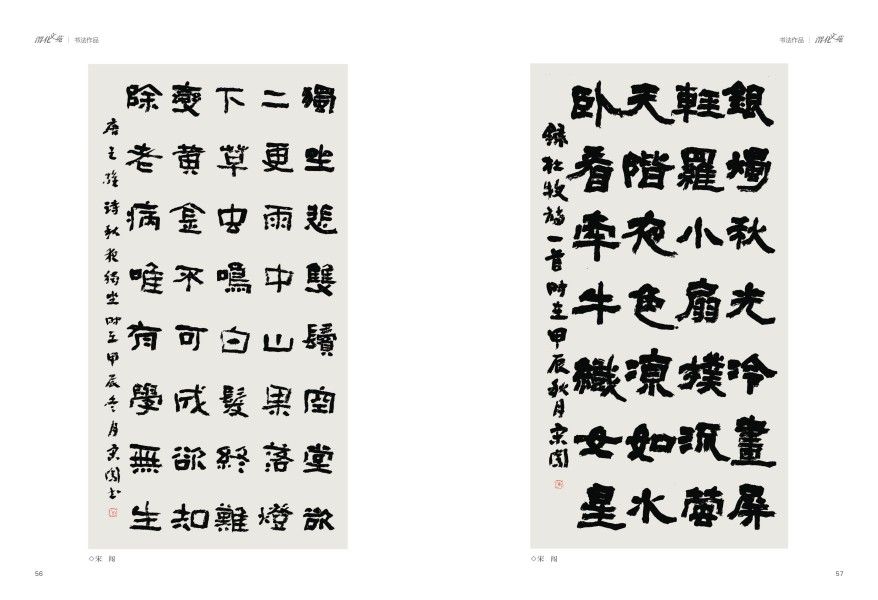 书法作品
獨坐悲雙鬢空堂欲
二更雨中山果落燈
下草虫鳴白髮終難
變黄金不可成欲知
除老病唯有學無生
唐王維詩秋夜獨坐时在甲辰冬月宋闖书
◇宋 闯
56
书法作品
銀燭秋光冷畫屏
輕羅小扇撲流螢
天階夜色凉如水
卧看牽牛織女星
録杜牧詩一首时在甲辰秋月宋闖
◇宋 闯
57